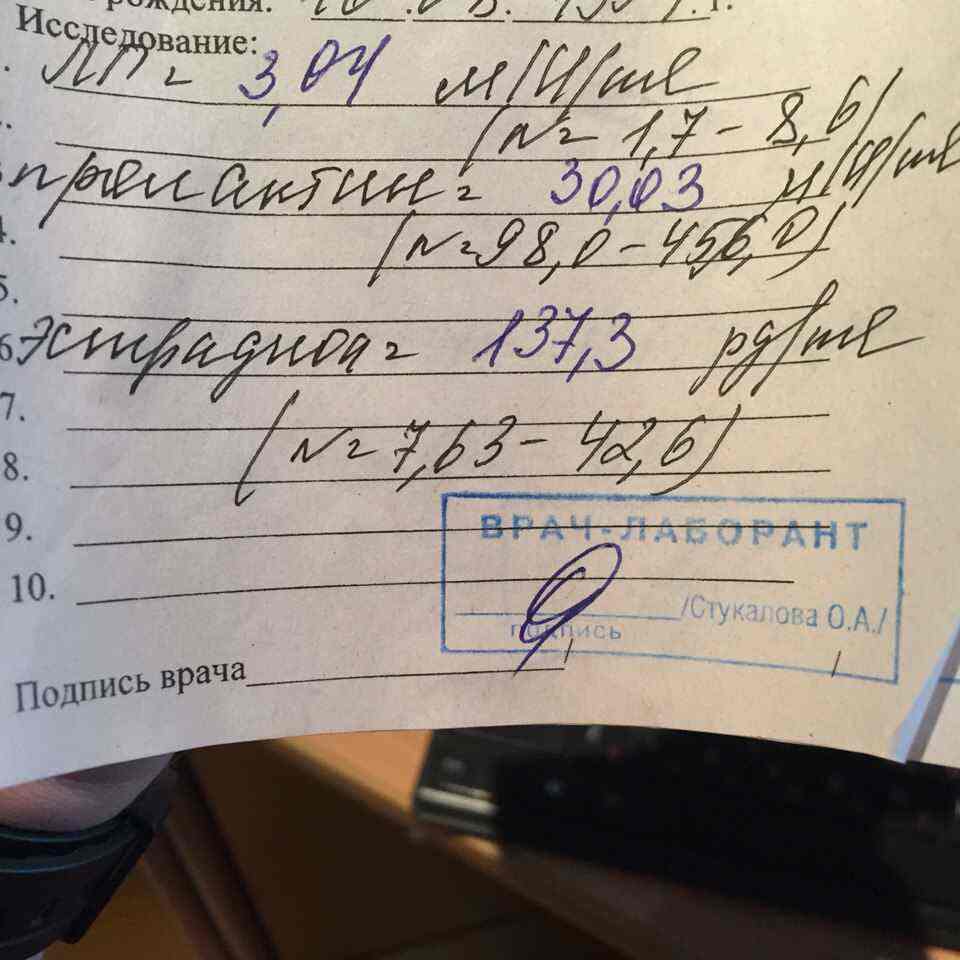 рождения: 10.03.
Исследование:
ЛГ = 3,04 мIU/мл
2.
(N = 1,7 - 8,6)
пролактин = 30,03 мIU/мл
4.
(N = 98,0 - 456,0)
5.
6. Эстрадиол = 137,3 pg/мл
7.
(N = 7,63 - 42,6)
8.
9.
ВРАЧ-ЛАБОРАНТ
10.
/Стукалова О.А./
подпись
Подпись врача